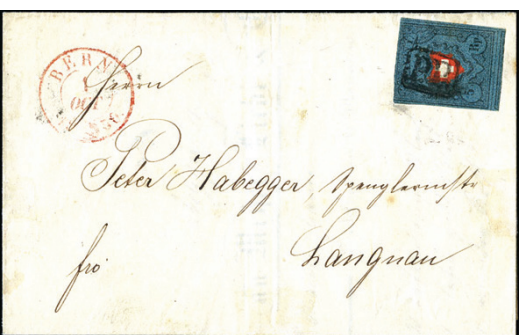 BERN
OC
Herrn
Peter Habegger, Spenglermstr
Langnau
fro